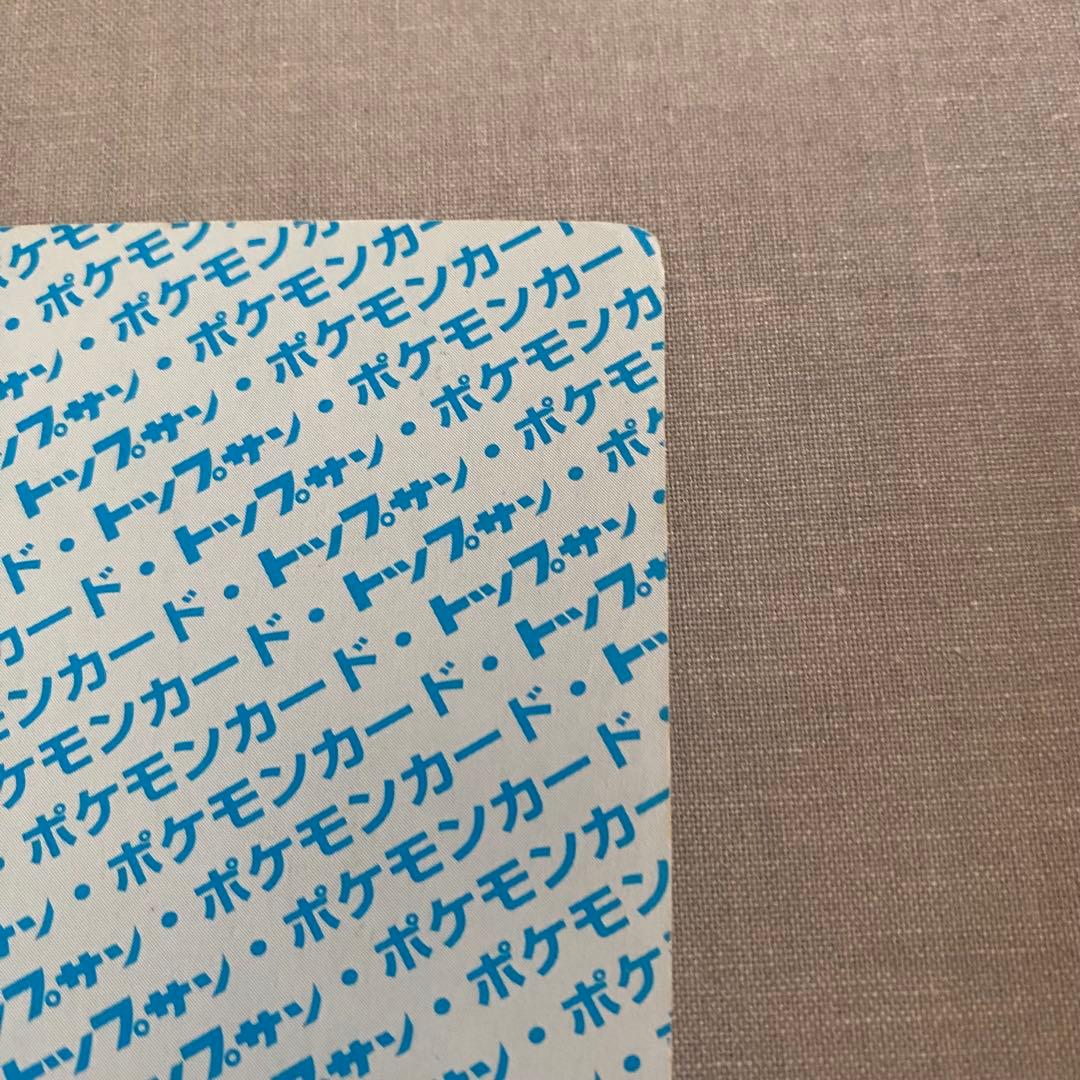 ポケモ
・ポケモン
・ポケモンカ
サン・ポケモンカー
トップサン・ポケモンカード
トップサン・ポケモンカード
ド・トップサン・ポケモンカー
カード・トップサン・ポケモンカ
モンカード・トップサン・ポケモ
ケモンカード・トップサン・ポケ
・ポケモンカード・トップサン・
サン・ポケモンカード・トップサ
トップサン・ポケモンカード・トッ
トップサン・ポケモンカード・
プサン・ポケモンカー
サン・ポケモン
・ポケ